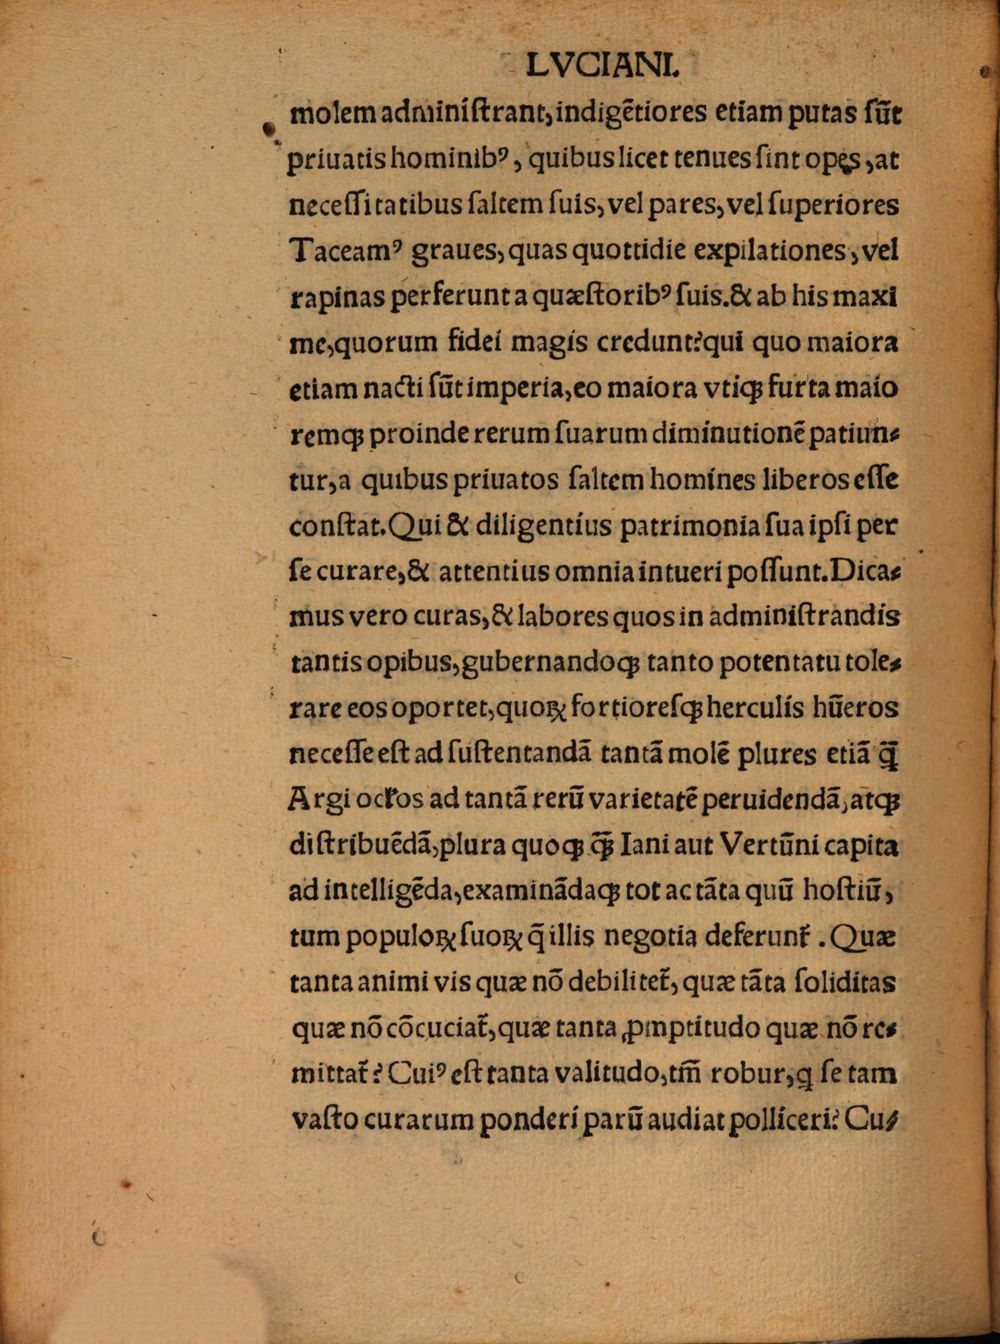 LVCIANI.
molem adminiſtrant,indigētiores etiam putas ſūt
priuatis hominibꝰ, quibus licet tenues ſint opęs,at
neceſſitatibus ſaltem ſuis,vel pares,vel ſuperiores
Taceamꝰ graues,quas quottidie expilationes,vel
rapinas perferunt a quæſtoribꝰ ſuis.& ab his maxi
me,quorum fidei magis credunt?qui quo maiora
etiam nacti ſūt imperia,eo maiora vtiqꝫ furta maio
remqꝫ proinde rerum ſuarum diminutionē patiun⸗
tur,a quibus priuatos ſaltem homines liberos eſſe
conſtat.Qui & diligentius patrimonia ſua ipſi per
ſe curare,& attentius omnia intueri poſſunt.Dica⸗
mus vero curas,& labores quos in adminiſtrandis
tantis opibus,gubernandoqꝫ tanto potentatu tole⸗
rare eos oportet,quoꝝ fortioreſqꝫ herculis hūeros
neceſſe eſt ad ſuſtentandā tantā molē plures etiā q̄ꝫ
Argi oc̄los ad tantā rerū varietatē peruidendā,atqꝫ
diſtribuēdā,plura quoqꝫ q̄ꝫ Iani aut Vertūni capita
ad intelligēda,examinādaqꝫ tot ac tāta quū hoſtiū,
tum populoꝝ ſuoꝝ q̄ illis negotia deferunt᷑ .Quæ
tanta animi vis quæ nō debilitet᷑, quæ tāta ſoliditas
quæ nō cōcuciat᷑,quæ tanta ꝓmptitudo quæ nō re⸗
mittat᷑? Cuiꝰ eſt tanta valitudo,tm̄ robur,ꝗ ſe tam
vaſto curarum ponderi parū audiat polliceri? Cu⸗